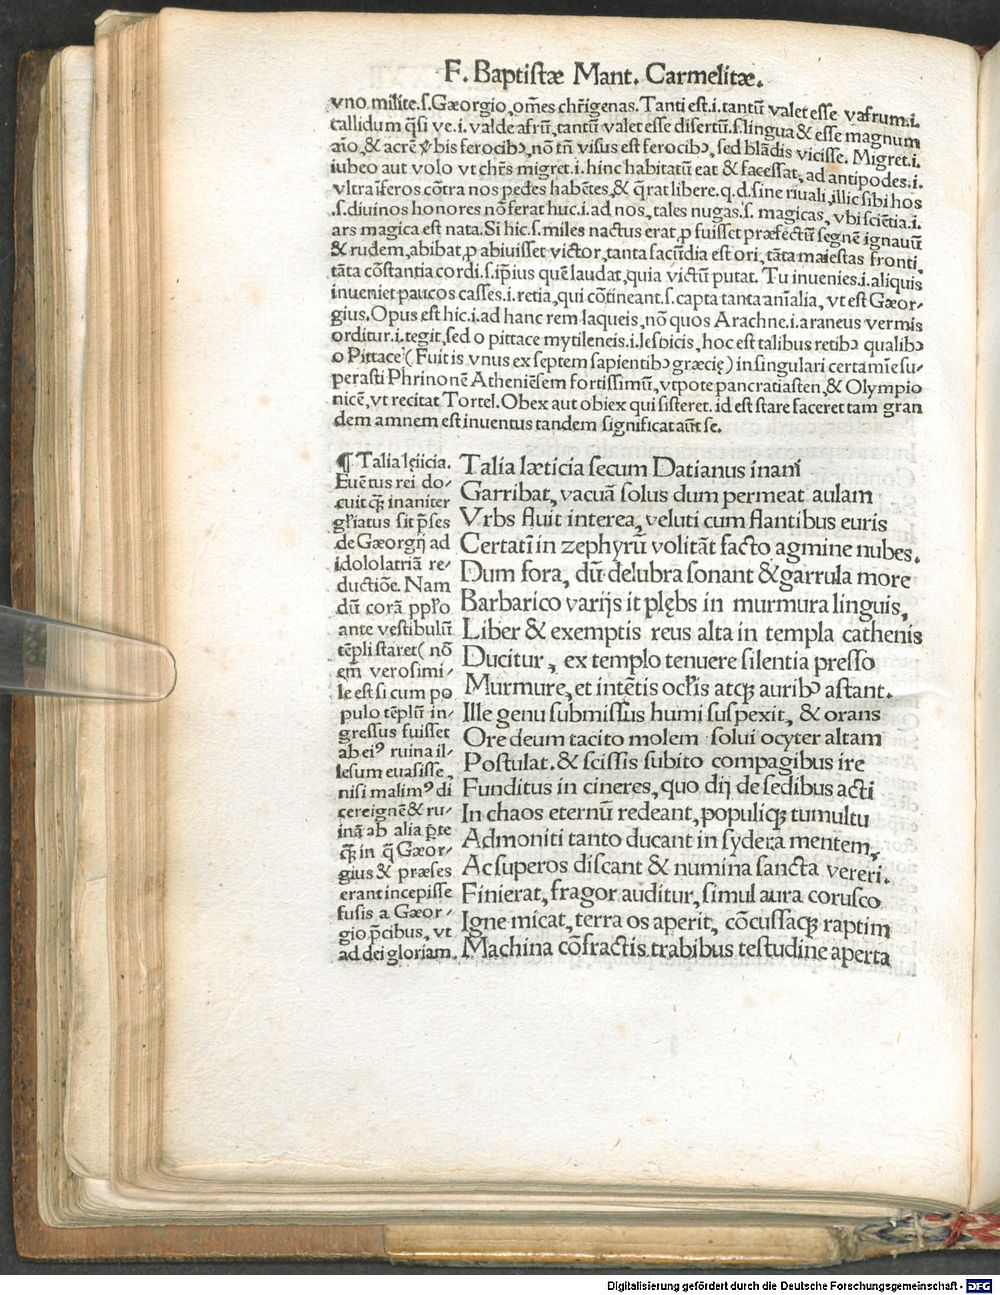 F. Baptistæ Mant. Carmelitæ.
vno milite.s.Gæorgio,om̃es chr̃igenas. Tanti est.i.tantũ valet esse vafrum.i.
callidum q̃si ve.i. valde afrũ,tantũ valet esse disertũ.s.lingua & esse magnum
aĩo,& acrẽ ṽbis ferocibꝰ,nõ tñ visus est ferocibꝰ,sed blãdis vicisse. Migret.i.
iubeo aut volo vt chr̃s migret.i.hinc habitatũ eat & facessat,ad antipodes.i.
vltra iferos cõtra nos pedes habẽtes,& q̃rat libere.q.d.sine riuali,illic sibi hos
.s.diuinos honores nõ ferat huc.i.ad nos,tales nugas.s. magicas,vbi sciẽtia.i.
ars magica est nata.Si hic.s.miles nactus erat.p fuisset præfectũ segnẽ ignauũ
& rudem,abibat.p abiuisset victor,tanta facũdia est ori,tãta maiestas fronti,
tãta cõstantia cordi.s.ip̃ius quẽ laudat,quia victũ putat. Tu inuenies.i.aliquis
inueniet paucos casses.i.retia,qui cõtineant.s.capta tanta anĩalia, vt est Gæor-
gius.Opus est hic.i.ad hanc rem laqueis,nõ quos Arachne.i.araneus vermis
orditur.i.tegit,sed o pittace mytileneis.i.lesbicis,hoc est talibus retibꝰ qualibꝰ
o Pittace (Fuit is vnus ex septem sapientibꝰ græcię) in singulari certamĩe su-
perasti Phrinonẽ Atheniẽsem fortissimũ,vtpote pancratiasten,& Olympio
nicẽ,vt recitat Tortel.Obex aut obiex qui sisteret. id est stare faceret tam gran
dem amnem est inuentus tandem significat aũt se.
¶ Talia lęiicia.
Euẽtus rei do-
cuit q̃ꝫ inaniter
gl̃iatus sit p̃ses
de Gæorgij ad
idololatriã re-
ductiõe. Nam
dũ corã ppl̃o
ante vestibulũ
tẽpli staret( nõ
em̃ verosimi-
le est si cum po
pulo tẽplũ in-
gressus fuisset
ab eiꝰ ruina il-
lesum euasisse,
nisi malimꝰ di
cere ignẽ & ru-
inã ab alia p̃te
q̃ꝫ in q̃ Gæor-
gius & præses
erant incepisse
fusis a Gæor-
gio p̃cibus, vt
ad dei gloriam.
Talia læticia secum Datianus inani
Garribat, vacuã solus dum permeat aulam
Vrbs fluit interea, veluti cum flantibus euris
Certatĩ in zephyrũ volitãt facto agmine nubes.
Dum fora, dũ delubra sonant & garrula more
Barbarico varijs it plębs in murmura linguis,
Liber & exemptis reus alta in templa cathenis
Ducitur, ex templo tenuere silentia presso
Murmure, et intẽtis ocl̃is atqꝫ auribꝰ astant.
Ille genu submissus humi suspexit, & orans
Ore deum tacito molem solui ocyter altam
Postulat. & scissis subito compagibus ire
Funditus in cineres, quo dij de sedibus acti
In chaos eternũ redeant, populiqꝫ tumultu
Admoniti tanto ducant in sydera mentem,
Ac superos discant & numina sancta vereri.
Finierat, fragor auditur, simul aura corusco
Igne micat, terra os aperit, cõcussaqꝫ raptim
Machina cõfractis trabibus testudine aperta
Digitalisierung gefördert durch die Deutsche Forschungsgemeinschaft - DFG